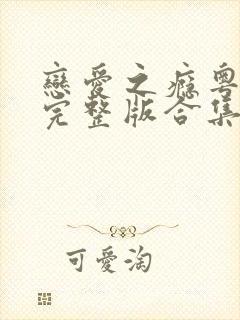 戀愛之癮粵
完整版合集
可愛淘